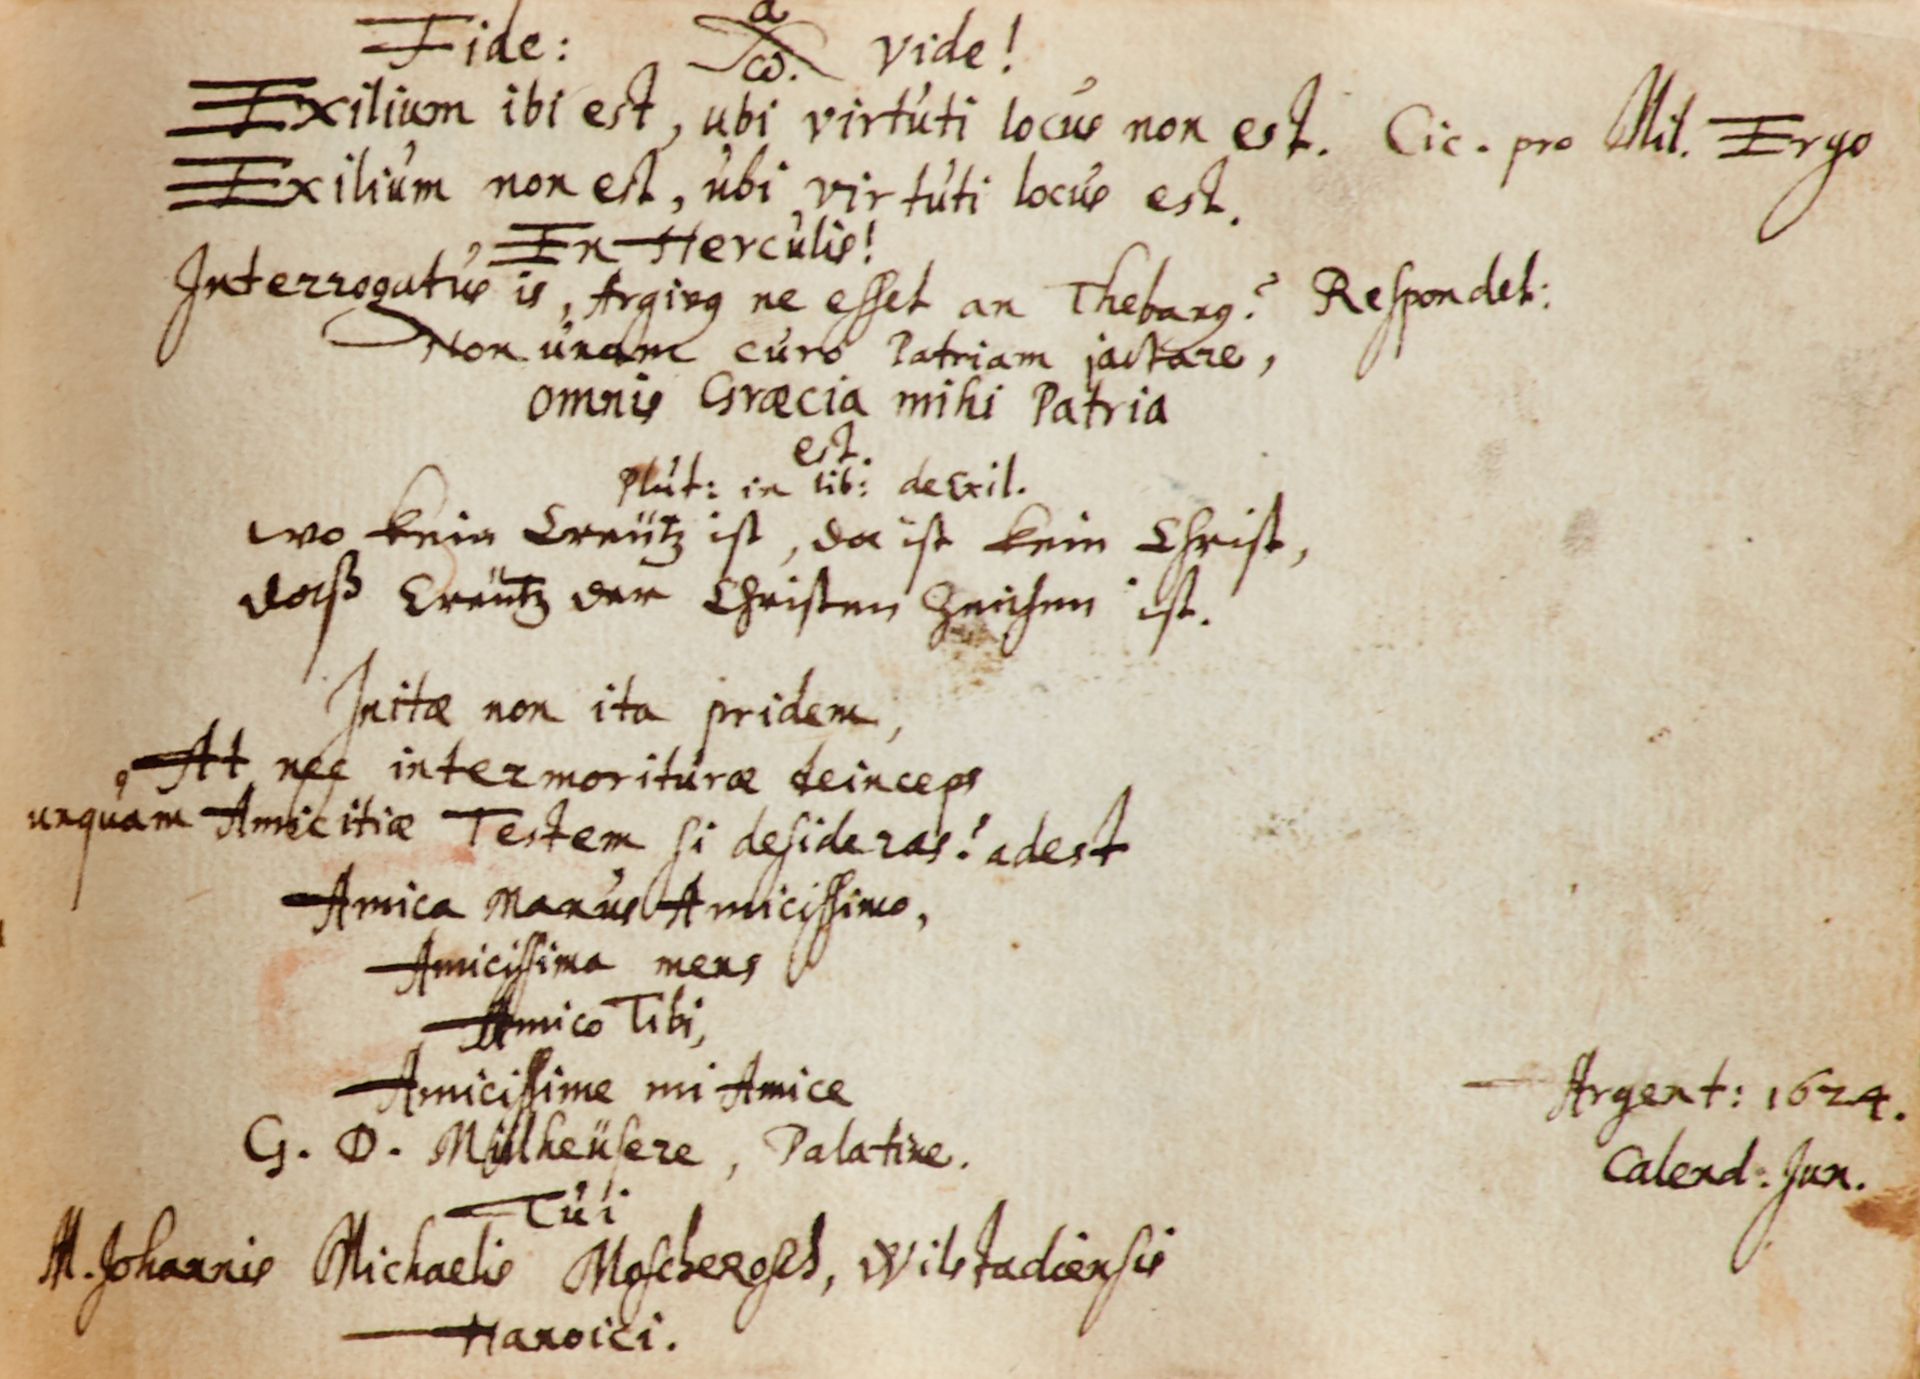 Fide: α ω. vide!
Exilium ibi est, ubi virtuti locus non est. Cic. pro Mil. Ergo
Exilium non est, ubi virtuti locus est.
En Herculis!
Interrogatus is, Argivꝰ ne esset an Thebanꝰ? Respondet:
Non unam curo Patriam jactare,
omnis Græcia mihi Patria
est.
Plut: in lib: de Exil.
wo kein Creütz ist, da ist kein Christ,
daß Creütz der Christen Zeichen ist.
Initæ non ita pridem,
At nec intermorituræ deinceps
unquam Amicitiæ Testem si desideras? adest
Amica Manus Amicissimo,
Amicissima mens
Amico Tibi,
Amicissime mi Amice
G. D. Mülheüsere, Palatine.
Tui
M. Johannis Michaelis Moscherosch, Wilstadiensis
Hanoici.
Argent: 1624.
Calend: Jun.